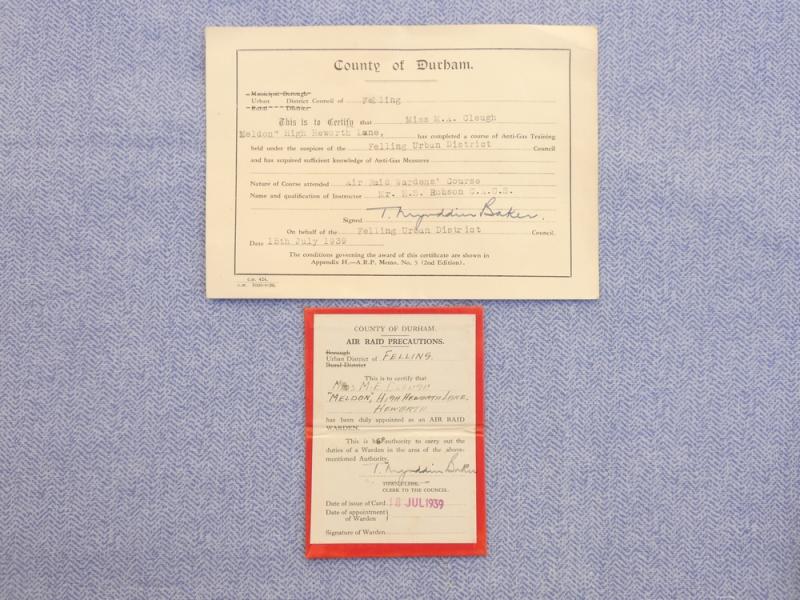 County of Durham.
Municipal Borough
Urban District Council of Felling
Rural District
This is to Certify that Miss M.A. Clough
Meldon" High Heworth Lane, has completed a course of Anti-Gas Training
held under the auspices of the Felling Urban District Council
and has acquired sufficient knowledge of Anti-Gas Measures
Nature of Course attended Air Raid Wardens' Course
Name and qualification of Instructor Mr. Robson C.A.G.S.
Signed T. Mynddin Baker.
On behalf of the Felling Urban District Council.
Date 18th July 1939
The conditions governing the award of this certificate are shown in
Appendix H.—A.R.P. Memo. No. 3 (2nd Edition).
C.D. 424.
COUNTY OF DURHAM.
AIR RAID PRECAUTIONS.
Borough
Urban District of FELLING.
Rural District
This is to certify that
Miss M.
"MELDON", HIGH HEWORTH LANE,
HEWORTH
has been duly appointed as an AIR RAID
WARDEN.
This is her authority to carry out the
duties of a Warden in the area of the above-
mentioned Authority.
T. Mynddin Baker
TOWN CLERK.
CLERK TO THE COUNCIL.
Date of issue of Card 18 JUL 1939
Date of appointment
of Warden
Signature of Warden